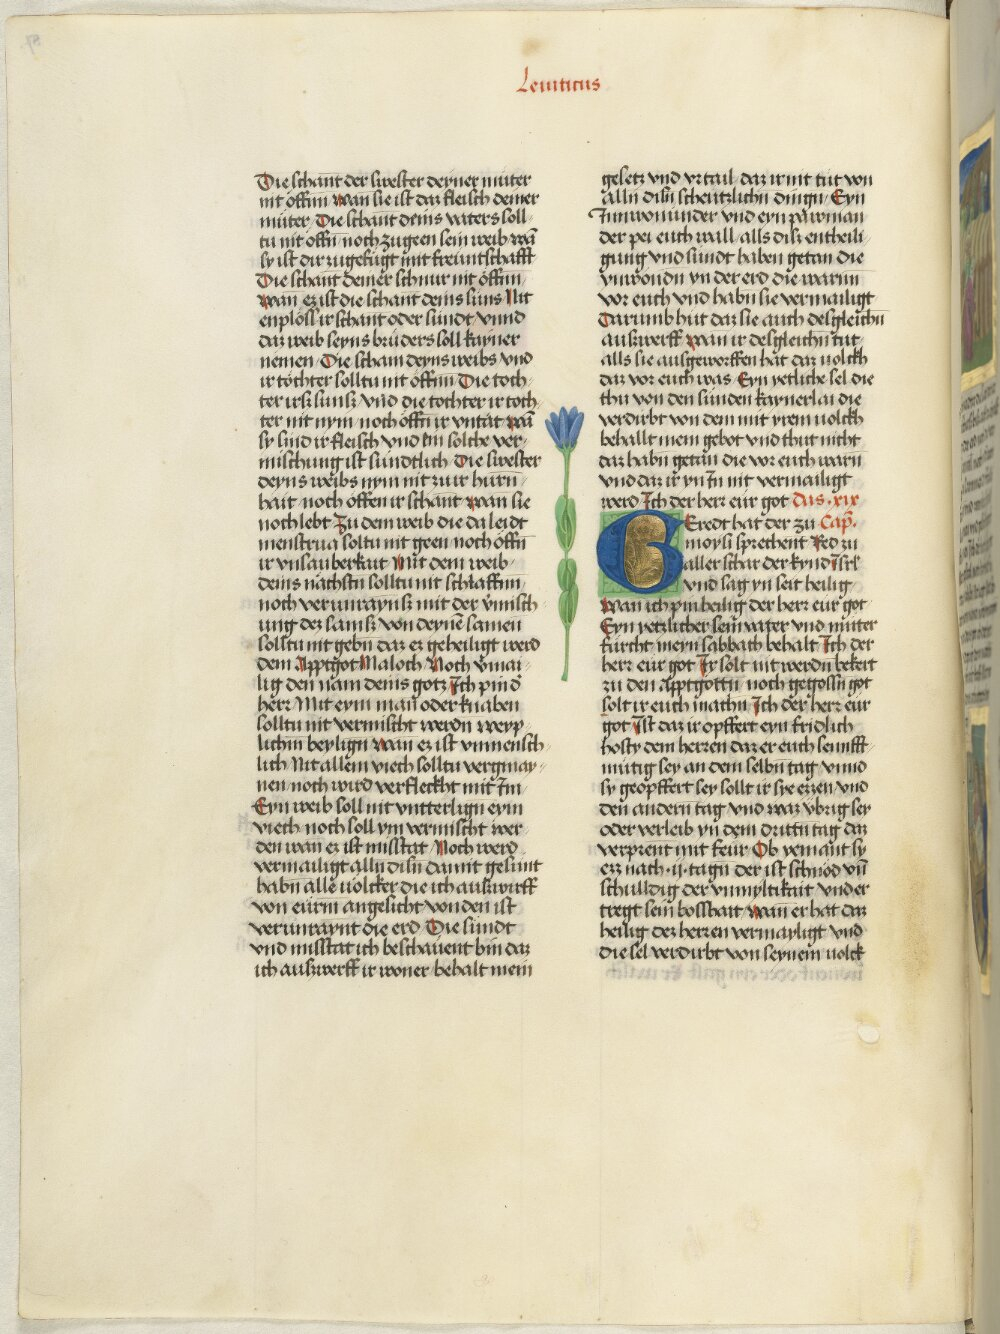 Leuiticus
Die schant der swester deyner muter
nit offinn wan sie ist daz fleisch deiner
muter Die schant deins vaters soll-
tu nit offn noch zugeen sein weib wā
sy ist dir zugefugt mit freuntschafft
Die schant deiner schnur nit offinn
wan ez ist die schant deins suns Nit
enplóss ir schant oder sundt vnnd
daz weib seyns bruders soll kayner
nemen Die scham deyns weibs vnd
ir tochter solltu nit offinn Die toch-
ter irs suns vnd die tochter ir toch-
ter nit nym noch offn ir vntat wā
sy sind ir fleisch vnd ein solche ver-
mischung ist sundtlich Die swester
deyns weibs nym nit zu ir hurn-
hait noch offen ir schant wan sie
noch lebt Zu dem weib die da leidt
menstrua soltu nit geen noch offn
ir vnsauberkait Mit dem weib
deins nachstn solltu nit schlaffinn
noch verunraynis mit der vmisch-
ung dez sams von deynē samen
solltu nit gebn daz ez geheiligt werd
dem Apptgot Maloch Noch vmai-
lig den nam deins gotz Ich pin d
herr Mit eym man oder knaben
solltu nit vermischt werdn weyp-
lichin beylign wan ez ist vnmensch-
lich Nit allem viech solltu vergmay-
nen noch wird verfleckht mit Im
Eyn weib soll nit vntterlign eym
viech noch soll ym vermischt wer-
den wan ez ist misstat Noch werd
vermailigt alln disn damit gesunt
habn alle uolcker die ich auszwurff
von eurm angesicht von den ist
verunraynt die erd Die sundt
vnd misstat ich beschauent bin daz
ich auszwerff ir woner behalt mein
gesetz vnd vrtail daz ir nit tut von
alln disn scheutzlichn dingn Eyn
Innwonnder vnd eyn pawman
der pei euch wall alls dise entheili-
gung vnd sundt haben getan die
ynwondn yn der erd die warnn
vor euch vnd habn sie vermailigt
Darumb hut daz sie auch desgleichn
auszwerff wan ir desgleichn tut-
alls sie ausgeworffen hat daz uolckh
daz vor euch was Eyn yetliche sel die
thu von den sunden kaynerlai die
verdirbt von dem mit yrem uolckh
behallt mein gebot vnd thut nicht
daz habn getan die vor euch warn
vnd daz ir yn In nit vermailigt
werd Ich der herr eur got Das .xix
Cap.
Geredt hat der zu
moysi sprechent Red zu
aller schar der kynd Isrl
vnd sag yn seit heilig
wan ich pin heilig der herr eur got
Eyn yetzlicher sein vater vnd mutter
furcht meyn sabbath behalt Ich der
herr eur got Ir solt nit werdn bekert
zu den Apptgottn noch gegossn got
solt ir euch machn Ich der herr eur
got Ist daz ir opffert eyn fridlich
hosty dem herren daz er euch sennfft-
mutig sey an dem selbn tag vnnd
sy geopffert sey sollt ir sye ezzen vnd
den andern tag vnd waz vbrig sey
oder verleib yn dem drittn tag daz
verprent mit feur Ob yemant sy
ezz nach .ij. tagn der ist schnod vn̄
schulldig der vnmyltikait vnd er
tregt sein bosshait wan er hat daz
heilig dez herren vermayligt vnd
die sel verdirbt von seynem uolck